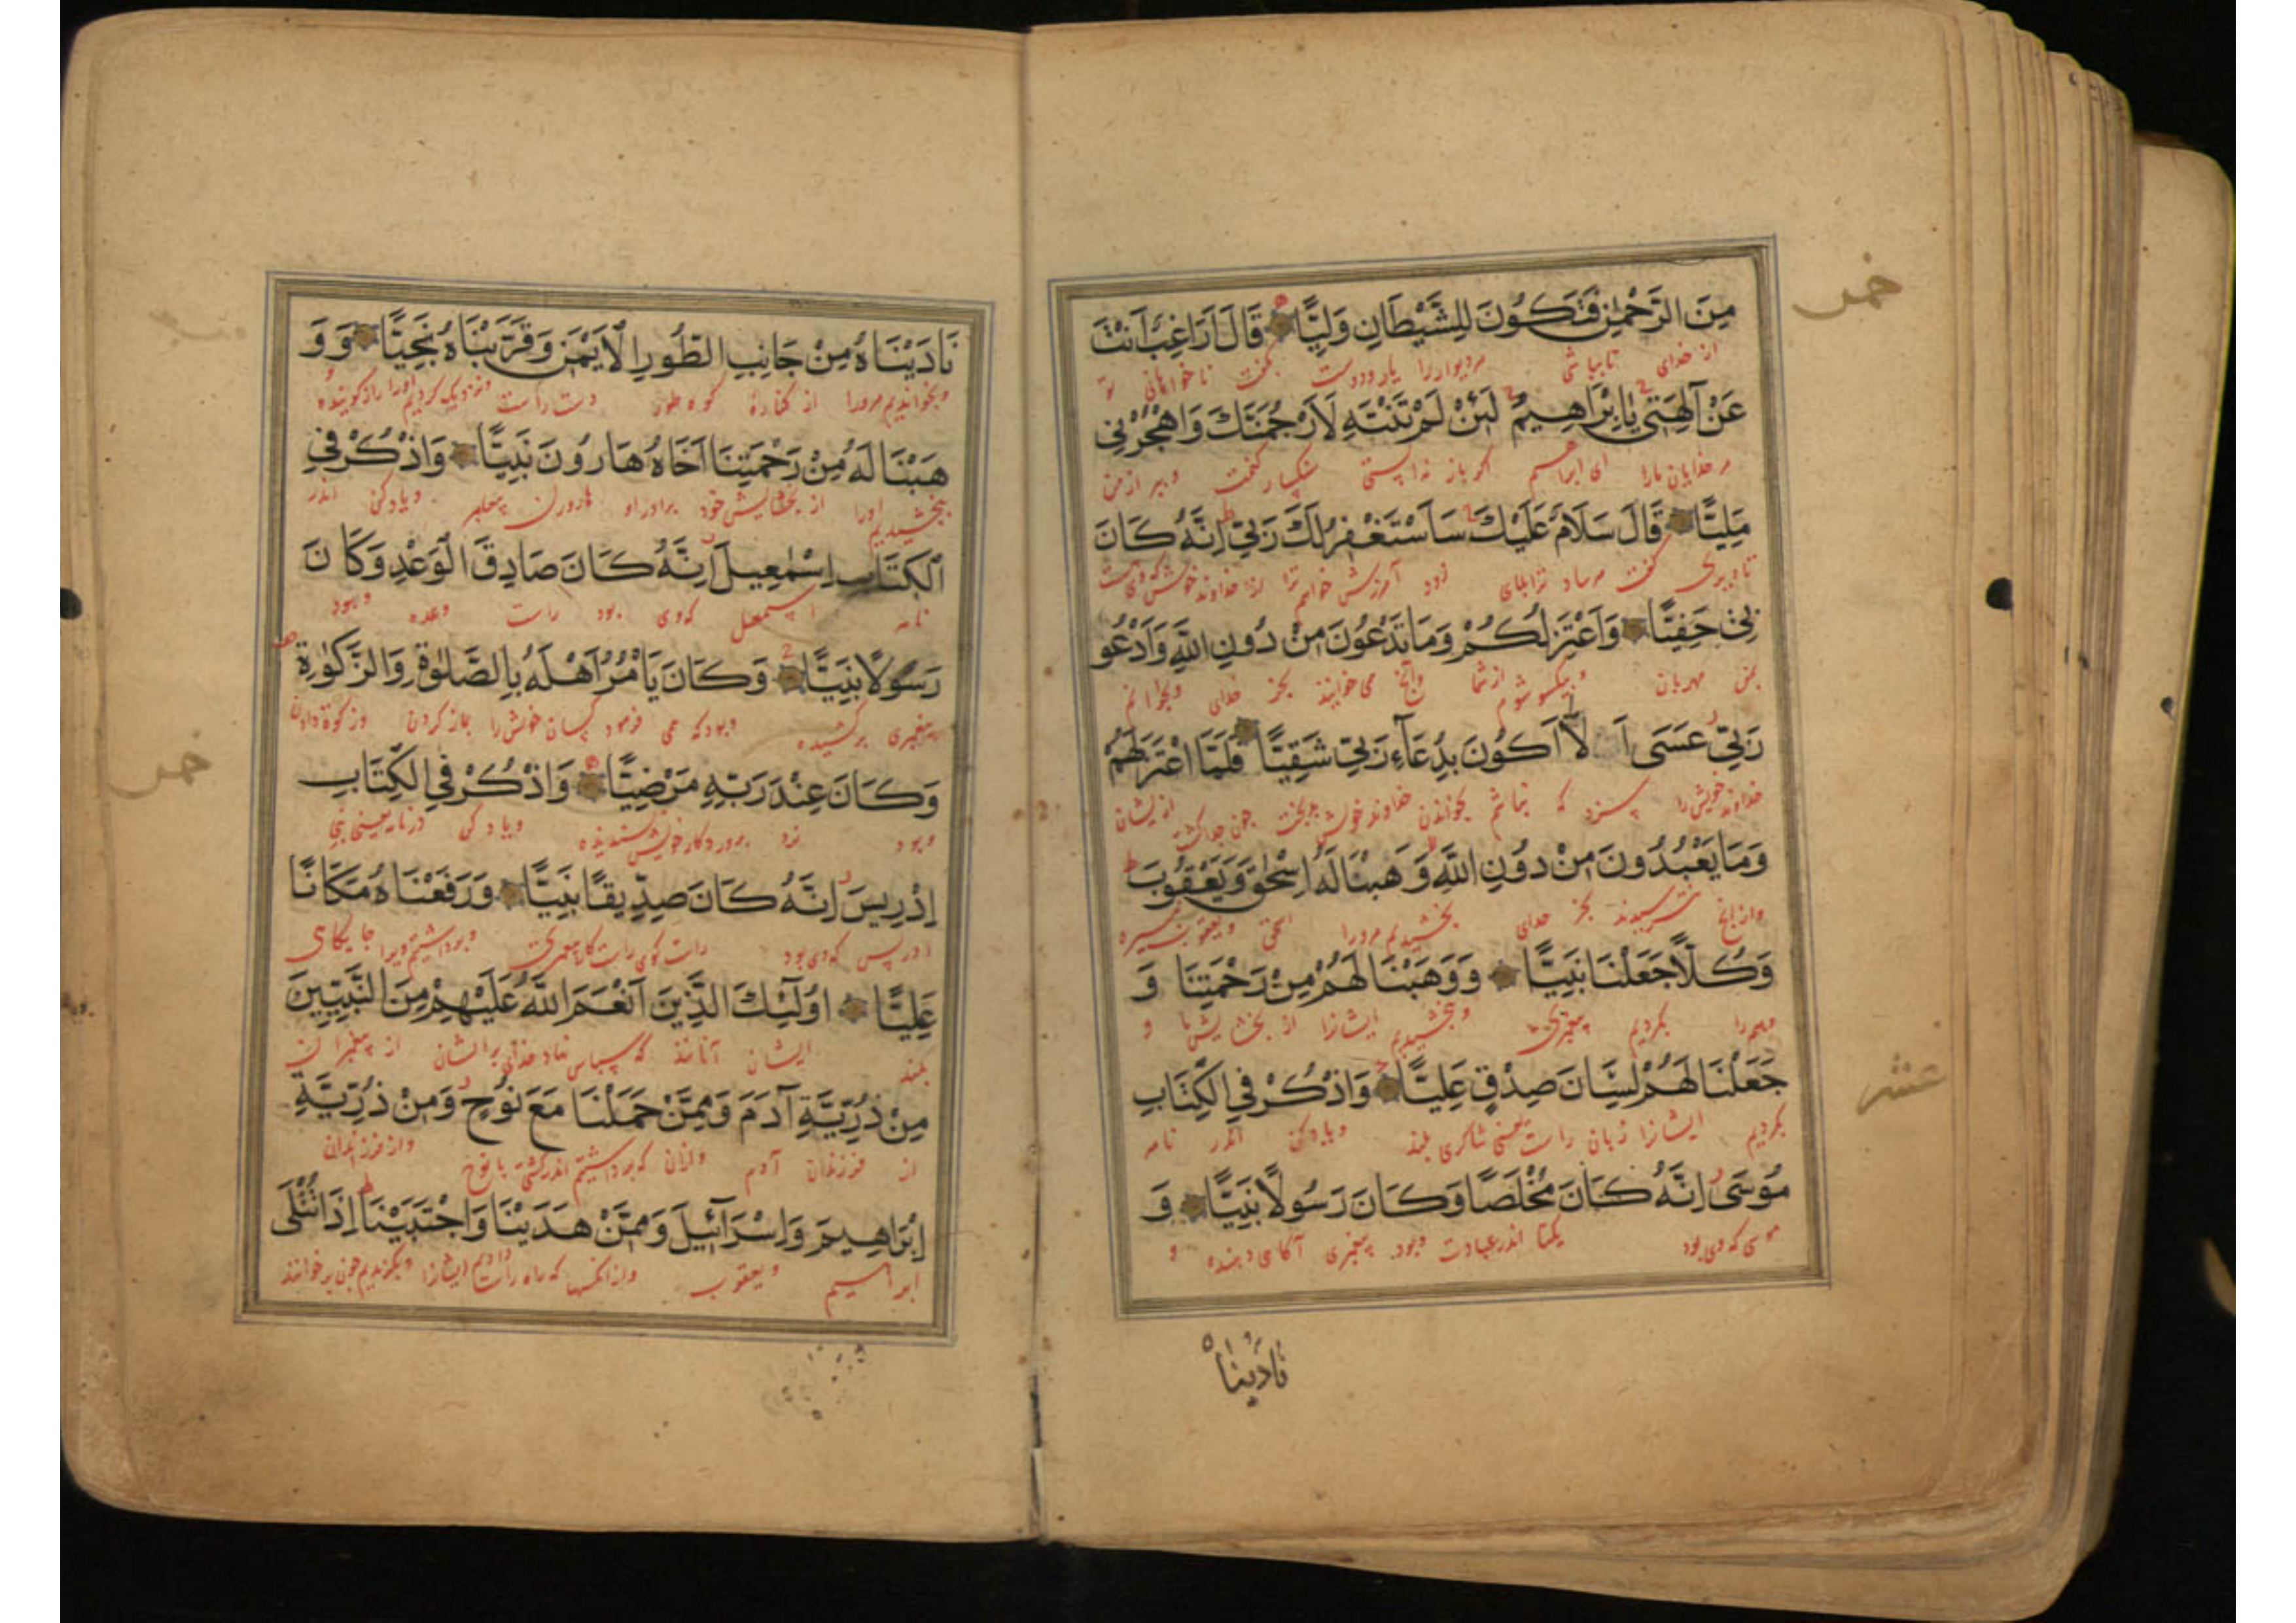 خمس
مِنَ الرَّحْمٰنِ فَتَكُونَ لِلشَّيْطَانِ وَلِيًّا قَالَ اَرَاغِبٌ اَنْتَ
از خدای تا باشی مر دیو را یار و دوست گفت نا خواهانی تو
عَنْ آلِهَتِى يَا اِبْرَاهِيمُ لَئِنْ لَمْ تَنْتَهِ لَاَرْجُمَنَّكَ وَاهْجُرْنِى
مر خدایان مارا ای ابراهیم اگر باز نه ایستی سنگسار کنمت و ببر از من
مَلِيًّا قَالَ سَلَامٌ عَلَيْكَ سَاَسْتَغْفِرُ لَكَ رَبِّى اِنَّهُ كَانَ
تا دیری گفت زود آمرزش خواهم ترا از خداوند خویش که وی است
بِى حَفِيًّا وَاَعْتَزِلُكُمْ وَمَا تَدْعُونَ مِنْ دُونِ اللّٰهِ وَاَدْعُو
بمن مهربان و یکسو شوم از شما وآنچ می خوانید بجز خدای وبخوانم
رَبِّى عَسَى اَ لَّا اَكُونَ بِدُعَاءِ رَبِّى شَقِيًّا فَلَمَّا اعْتَزَلَهُمْ
خداوند خویش را سزد که نباشم بخواندن خداوند خویش بدبخت چون جدا گشت ازیشان
وَمَا يَعْبُدُونَ مِنْ دُونِ اللّٰهِ وَهَبْنَا لَهُ اِسْحٰقَ وَيَعْقُوبَ
وازانچ می پرستیدند بجز خدای بخشیدیم مرورا اسحق ویعقوب نبیره
وَكُلًّا جَعَلْنَا نَبِيًّا وَوَهَبْنَا لَهُمْ مِنْ رَحْمَتِنَا وَ
وهمه را بکردیم پیغمبر وبخشیدیم ایشانرا از بخشایش ما و
جَعَلْنَا لَهُمْ لِسَانَ صِدْقٍ عَلِيًّا وَاذْكُرْ فِى الْكِتَابِ
عشر
بکردیم ایشانرا زبان راست یعنی شاکری بلند ویاد کن اندر نامه
مُوسَى اِنَّهُ كَانَ مُخْلَصًا وَكَانَ رَسُولًا نَبِيًّا وَ
موسی که وی بود یکتا اندر عبادت وبود پیغمبری آگاهی دهنده و
نَادَيْنَاهُ
نَادَيْنَاهُ مِنْ جَانِبِ الطُّورِ الْاَيْمَنِ وَقَرَّبْنَاهُ نَجِيًّا وَوَ
وبخواندیم مرورا از کناره کوه طور دست راست ونزدیک کردیم اورا راز گوینده
هَبْنَا لَهُ مِنْ رَحْمَتِنَا اَخَاهُ هَارُونَ نَبِيًّا وَاذْكُرْ فِى
ببخشیدیم اورا از بخشایش خود برادر او هارون پیغامبر ویاد کن اندر
الْكِتَابِ اِسْمٰعِيلَ اِنَّهُ كَانَ صَادِقَ الْوَعْدِ وَكَانَ
نامه اسمعیل که وی بود راست وعده وبود
رَسُولًا نَبِيًّا وَكَانَ يَاْمُرُ اَهْلَهُ بِالصَّلٰوةِ وَالزَّكٰوةِ
پیغمبری برکشیده وبود که می فرمود کسان خویش را بنماز کردن وزکوة دادن
خمس
وَكَانَ عِنْدَ رَبِّهِ مَرْضِيًّا وَاذْكُرْ فِى الْكِتَابِ
وبود نزد پروردگار خویش پسندیده ویاد کن در نامه یعنی نبی
اِدْرِيسَ اِنَّهُ كَانَ صِدِّيقًا نَبِيًّا وَرَفَعْنَاهُ مَكَانًا
ادریس که وی بود راست کوی راست کار پیغمبری وبرداشتیم ویرا جایگای
عَلِيًّا اُولٰئِكَ الَّذِينَ اَنْعَمَ اللّٰهُ عَلَيْهِمْ مِنَ النَّبِيِّينَ
بلند ایشان آنانند که سپاس نهاد خدای برایشان از پیغمبران
مِنْ ذُرِّيَّةِ آدَمَ وَمِمَّنْ حَمَلْنَا مَعَ نُوحٍ وَمِنْ ذُرِّيَّةِ
از فرزندان آدم وازان که برداشتیم اندر کشتی با نوح واز فرزندان
اِبْرَاهِيمَ وَاِسْرَائِيلَ وَمِمَّنْ هَدَيْنَا وَاجْتَبَيْنَا اِذَا تُتْلَى
ابراهیم ویعقوب وازانکسها که راه راست دادیم ایشانرا وبگزیدیم چون بر خوانند